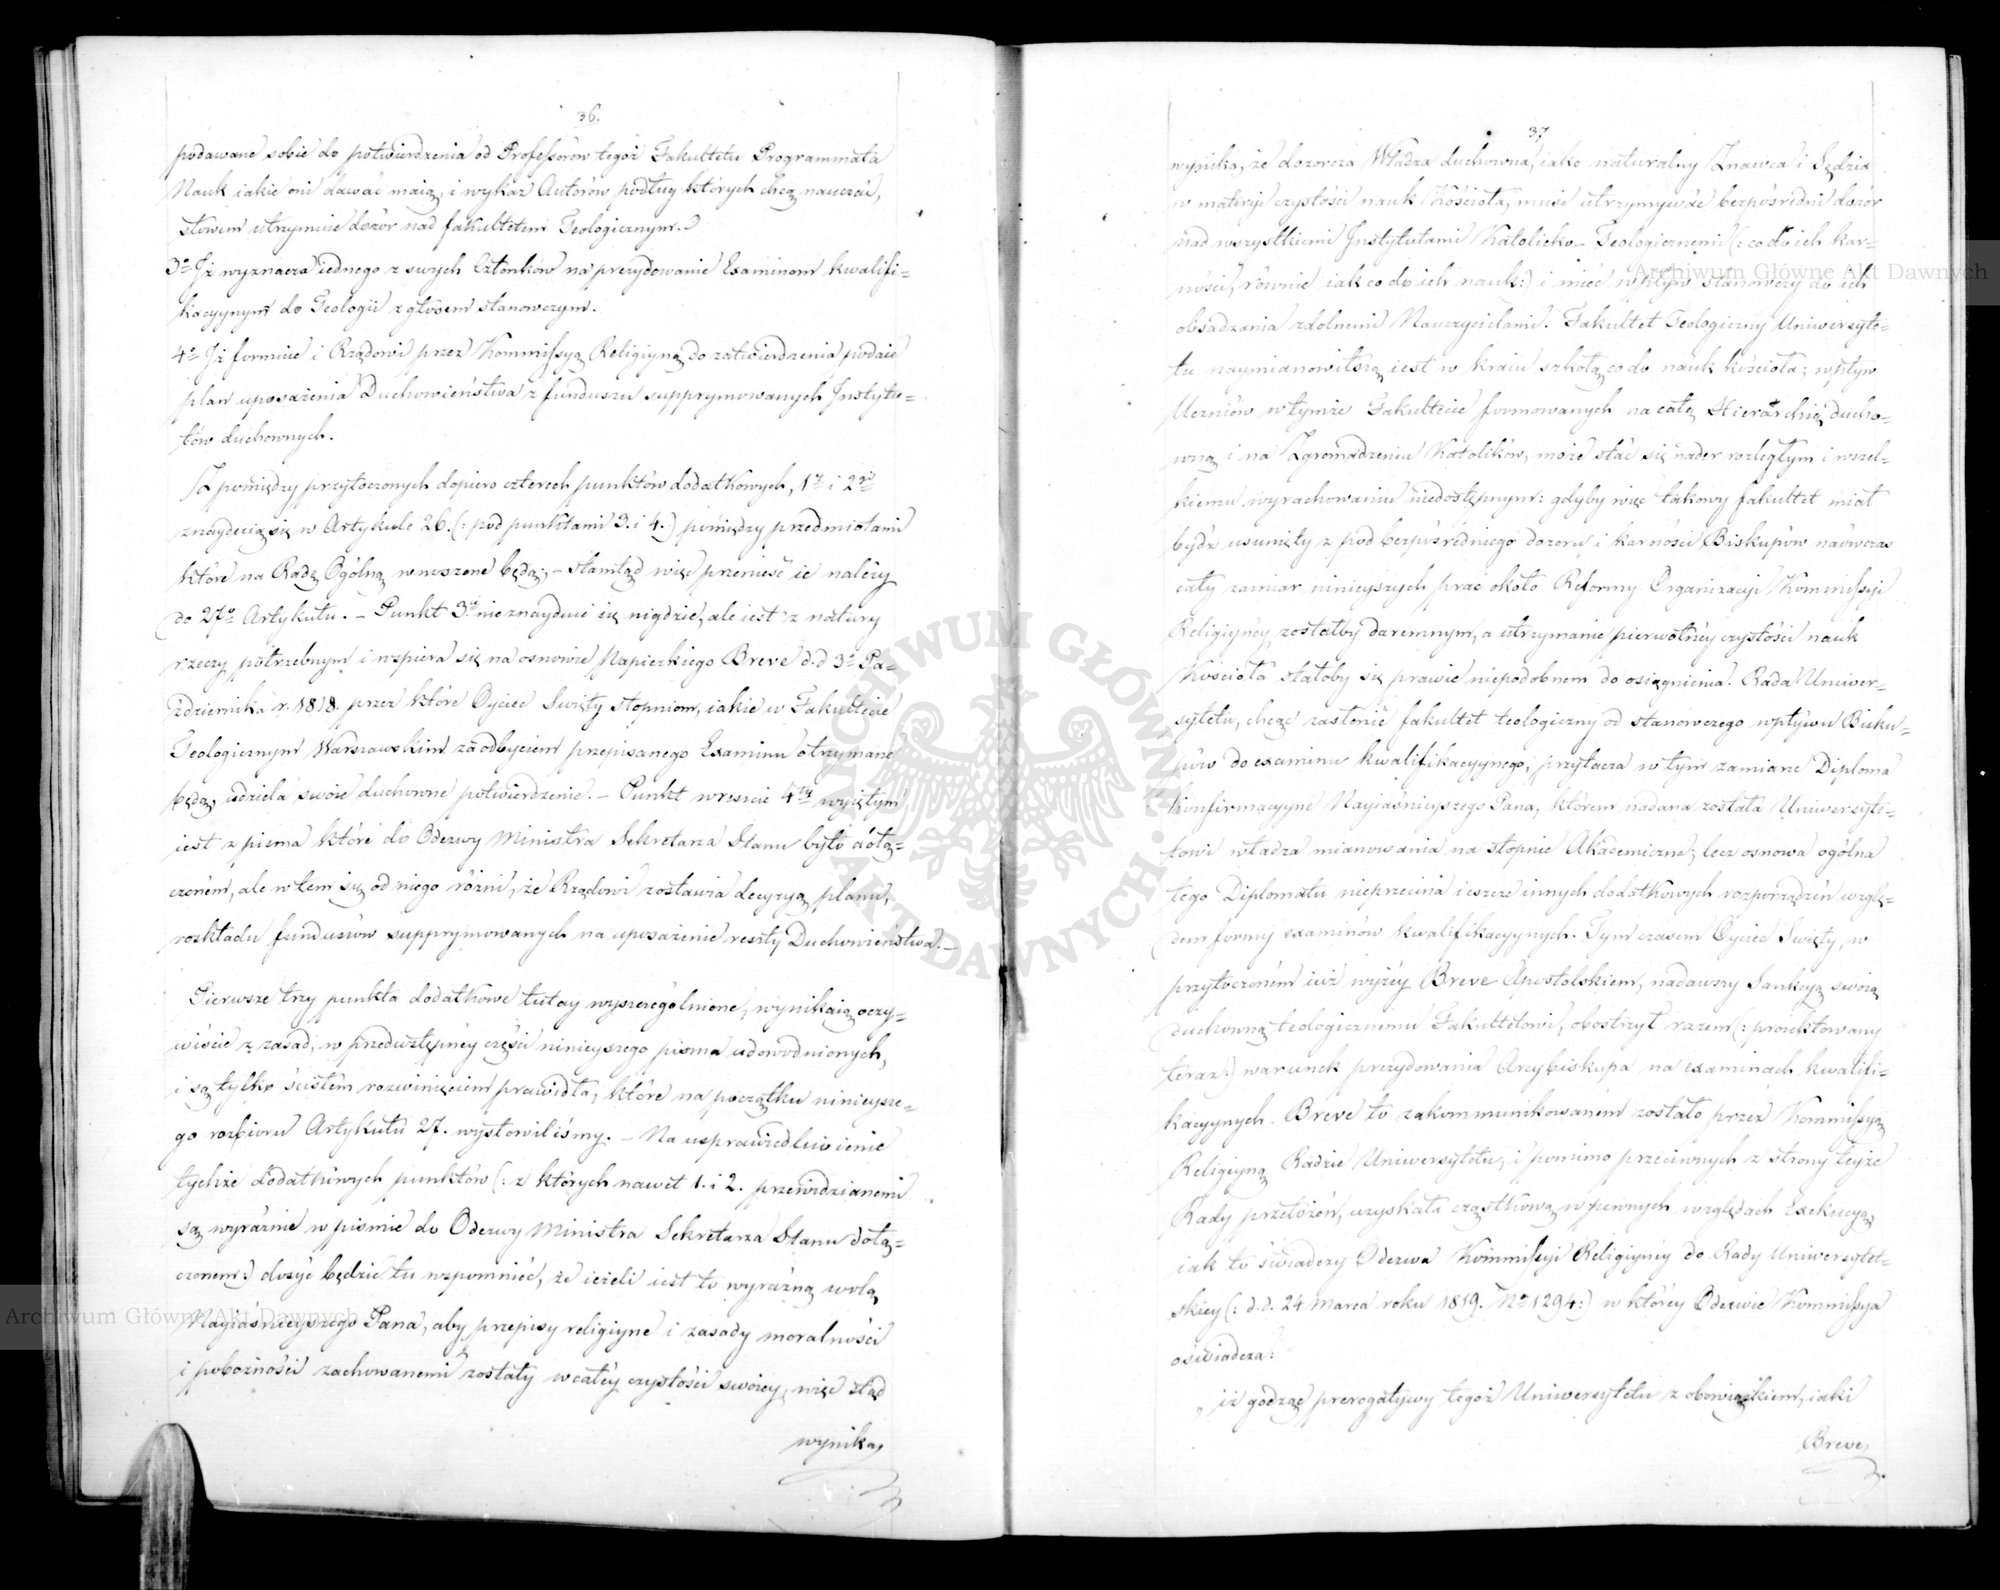 36.
podawane sobie do potwierdzenia od Professorów tegoż Fakultetu Programmata
Nauk iakie oni dawać maią, i wykaz Autorów podług których chcą nauczać,
słowem utrzymuie dozór nad fakultetem Teologicznym.
3o Iż wyznacza iednego z swych Członków na prezydowanie Examinom kwalifi-
kacyynym do Teologii z głosem stanowczym.
4o Iż formuie i Rządowi przez Kommissyą Religiyną do zatwierdzenia podaie
plan uposażenia Duchowieństwa z funduszu supprymowanych Instytu-
tów duchownych.
Z pomiędzy przytoczonych dopiero czterech punktów dodatkowych, 1y i 2gi
znayduią się w Artykule 26. (: pod punktami 3. i 4.:) pomiędzy przedmiotami
które na Radę Ogólną wnoszone będą; - stamtąd więc przenieść ie należy
do 27o Artykułu. - Punkt 3ci nieznayduie się nigdzie, ale iest z natury
rzeczy potrzebnym i wspiera się na osnowie Papiezkiego Breve d.d 3o Pa-
zdziernika r. 1818. przez które Oyciec Swięty stopniom, iakie w Fakultecie
Teologicznym Warszawskim za odbyciem przepisanego Examinu otrzymane
będą, udziela swoie duchowne potwierdzenie. - Punkt wreszcie 4ty wyiętym
iest z pisma które do Odezwy Ministra Sekretarza Stanu było dołą-
czoném, ale w tem się od niego różni, że Rządowi zostawia decyzyą planu,
rozkładu funduszów supprymowanych na uposażenie reszty Duchowieństwa. -
Pierwsze trzy punkta dodatkowe tutay wyszczególnione, wynikaią oczy-
wiście z zasad, w przedwstępnéy części ninieyszego pisma udowodnionych,
i są tylko ścisłém rozwinięciem prawidła, które na początku ninieysze-
go rozbioru Artykułu 27. wystowiliśmy. - Na usprawiedliwienie
tychże dodatkowych punktów (: z których nawet 1. i 2. przewidzianemi
są wyraźnie w piśmie do Odezwy Ministra Sekretarza Stanu dołą-
czonem:) dosyć będzie tu wspomnieć, że ieżeli iest to wyraźną wolą
Nayiaśnieyszego Pana, aby przepisy religiyne i zasady moralności
i pobożności zachowanemi zostały w całéy czystości swoiey, więc ztąd
wynika,
37
wynika, że dozorcza Władza duchowna, iako naturalny Znawca i Sędzia
w materyi czystości nauk Kościoła, musi utrzymywać bezpośredni dozór
nad wszystkiemi Instytutami Katolicko-Teologicznemi (: co do ich kar-
ności, równie iak co do ich nauk:) i mieć wpływ stanowczy do ich
obsadzania zdolnemi Nauczycielami. Fakultet Teologiczny Uniwersyte-
tu naymianowitszą iest w kraiu szkołą co do nauk kościoła; wpływ
Uczniów w tymże Fakultecie formowanych na całą Hierarchią ducho-
wną i na Zgromadzenia Katolików, może stać się nader rozległym i wszel-
kiemu wyrachowaniu niedostępnym: gdyby więc takowy fakultet miał
bydź usunięty z pod bezpośredniego dozoru i karności Biskupów naówczas
cały zamiar ninieyszych prac około Reformy Organizacyi Kommissyi
Religiynéy zostałby daremnym, a utrzymanie pierwotnéy czystości nauk
Kościoła stałoby się prawie niepodobnem do osiągnienia. Rada Uniwer-
sytetu, chcąc zasłonić fakultet teologiczny od stanowczego wpływu Bisku-
pów do examinu kwalifikacyynego, przytacza w tym zamiarze Diploma
konfirmacyyne Nayiaśnieyszego Pana, którem nadana została Uniwersyte-
towi władza mianowania na stopnie Akademiczne; lecz osnowa ogólna
tego Diplomatu nieprzecina ieszcze innych dodatkowych rozporządzeń wzglę-
dem formy examinów kwalifikacyynych. Tym czasem Oyciec Swięty, w
przytoczoném iuż wyżéy Breve Apostolskiem, nadawszy Sankcyą swoią
duchowną teologicznemu Fakultetowi, obostrzył razem (: proiektowany
teraz:) warunek prezydowania Arcybiskupa na examinach kwalifi-
kacyynych. Breve to zakommunikowanem zostało przez Kommissyą
Religiyną Radzie Uniwersytetu, i pomimo przeciwnych z strony teyże
Rady przełożeń, uzyskała cząstkową w pewnych względach Exekucyą,
iak to świadczy Odezwa Kommissyi Religiynéy do Rady Uniwersytet-
skiey (: d.d. 24 Marca roku 1819. No 1294:) w któréy Odezwie Kommissya
oświadcza:
„ iż godząc prerogatywy tegoż Uniwersytetu z obowiązkiem, iaki
Breve
ARCHIWUM GŁÓWNE AKT DAWNYCH
Archiwum Główne Akt Dawnych
Archiwum Główne Akt Dawnych